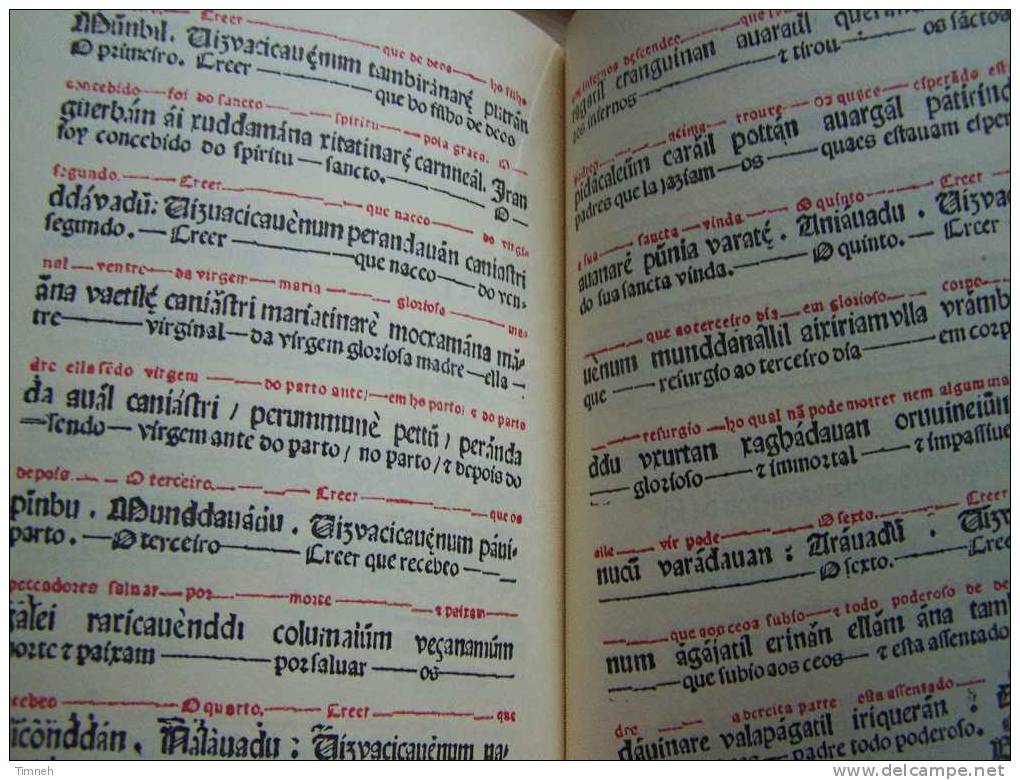 Creer — que de deos — ho filho
Munbil. Uizvacicavẹnum tambiránarẹ́ putrán
O primeiro. Creer — que do filho de deos
concebido — foi do sancto — spiritu — pola graca. O
guerbáin ái xuddamána xitatinarẹ́ carnneál. Jran
foy concebido do spiritu — sancto. — O —
segundo. — Creer — que naceo — do virgi-
ddávadũ: Uizuacicauènum perandauán caniastri
segundo. — Creer — que naceo — do ven-
nal — ventre — da virgem — maria — gloriosa — ma-
ãna vaetilẹ́ caniãstri mariatinarè mocxamána mã-
tre — virginal — da virgem gloriosa madre — ella —
dre ella sẽdo virgem — do parto ante / em ho parto: e do parto
da auál caniástri / perummunè pettũ / peránda
— sendo — virgem ante do parto / no parto / z depois do
depois. — O terceiro. — Creer — que os
pĩnbu . Munddaváciu . Uizvacicavẹnum pávi-
parto. — O terceiro — Creer que recebeo —
peccadores saluar — por — morte — z paixam
gálei raricauènddi columaiũm veçanamũm
morte z paixam — por saluar — os —
recebeo — O quarto. — Creer — que
ricõnddán. Nálávadu : Uizvacicavénum pa-
infernos descendeo — que
ragatil eranguinan auaradil querũ
aos infernos — z tirou — os sãctos
padres — acima — trouxe — os quaes — esperãdo est
pidácaleũm caráil pottạn auargál pátirind
padres que la jaziam — os — quaes estauam esper
a sua — sancta — vinda — O quinto — Creer
auanaré pũnia varatẹ́ . Aniáuadu . Uizva
do sua sancta vinda. — O quinto. — Creer
— que ao terceiro dia — em glorioso — corpo
uènum munddanállil aixiriamulla vrámb
que — resurgio ao terceiro dia — em corp
— resurgio — ho qual nã pode morrer nem algum ma
ddu vxurtan xaghádauan oruuineiũm
— glorioso — z immortal — z impassiue
elle — vir pode — O sexto. — Creer
nucũ varádauan : Aráuadũ . Uizv
— O sexto. — Cree
— que aos ceos subio — z todo poderoso de de
num ágájatil erinán ellám ána tamb
— que subio aos ceos — z esta assentado
dre — a dereita parte — esta assentado
dáuinare valapágatil iriquerán .
— padre todo poderoso.
Timneh
www.delcampe.net